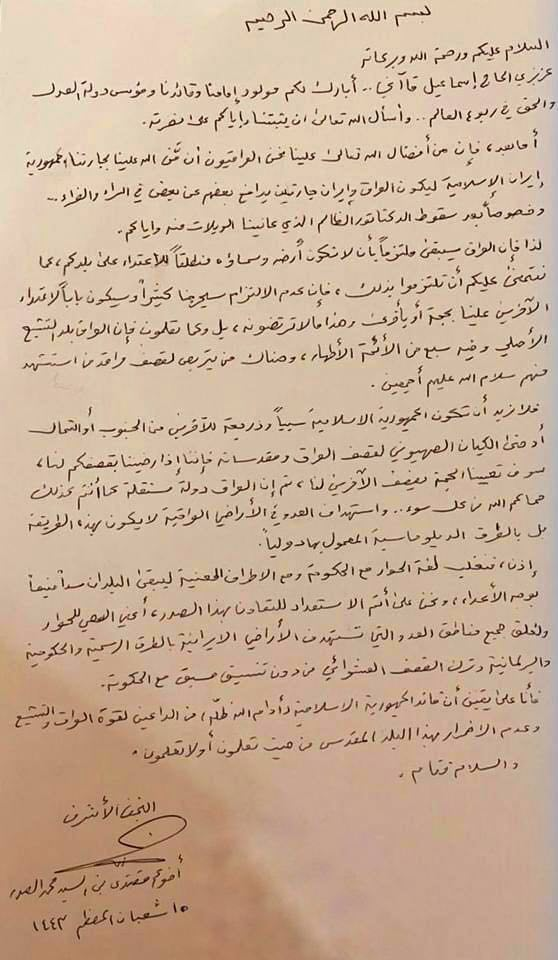 بسم الله الرحمن الرحيم
السلام عليكم ورحمة الله وبركاته
عزيزي الحاج إسماعيل قاآني.. أبارك لكم مولود إمامنا وقائدنا ومؤسس دولة العدل
والحق في ربوع العالم.. وأسأل الله تعالى ان يثبتنا وإياكم على نصرته.
أما بعد، فإن من أفضال الله تعالى علينا نحن العراقيون أن منّ الله علينا بجارتنا الجمهورية
إيران الإسلامية ليكون العراق وإيران جارتين يدافع بعضهم عن بعض في السراء والضراء...
وخصوصاً بعد سقوط الدكتاتور الظالم الذي عانينا الويلات منه وإياكم.
لذا فإن العراق سيبقى ملتزماً بأن لا تكون أرضه وسماؤه منطلقاً للاعتداء على بلدكم، كما
نتمنى عليكم أن تلتزموا بذلك، فإن عدم الالتزام سيحرجنا كثيراً وسيكون باباً لاعتداء
الآخرين علينا بحجة أو بأخرى وهذا ما لا ترتضونه، بل وكما تعلمون فإن العراق بلد التشيع
الأصلي وفيه سبع من الأئمة الأطهار، وهناك من يتربص لقصف مراقد من استشهد
منهم سلام الله عليهم أجمعين.
فلا نريد أن تكون الجمهورية الاسلامية سبباً وذريعة للآخرين من الجنوب أو الشمال
أو حتى الكيان الصهيوني لقصف العراق ومقدساته فإننا إذا رضينا بقصفكم لنا،
سوف تعيينا الحجة بقصف الآخرين لنا، ثم إن العراق دولة مستقلة كما أنتم كذلك
حماكم الله من كل سوء.. واستهداف العدو في الأراضي العراقية لا يكون بهذه الطريقة
بل بالطرق الدبلوماسية المعمول بها دولياً.
إذن، فنغلب لغة الحوار مع الحكومة ومع الاطراف المعنية ليبقى البلدان سداً منيعاً
بوجه الأعداء، ونحن على أتم الاستعداد للتعاون بهذا الصدد، أعني السعي للحوار
ولغلق جميع مناطق العدو التي تستهدف الأراضي الايرانية بالطرق الرسمية والحكومية
والبرلمانية وترك القصف العشوائي من دون تنسيق مسبق مع الحكومة.
فأنا على يقين أن قائد الجمهورية الاسلامية (أدام الله ظله) من الداعين لقوة العراق والتشيع
وعدم الاضرار بهذا البلد المقدس من حيث تعلمون أو لا تعلمون.
والسلام ختام.
النجف الأشرف
أخوكم مقتدى بن السيد محمد الصدر
١٥ شعبان المعظم ١٤٤٣